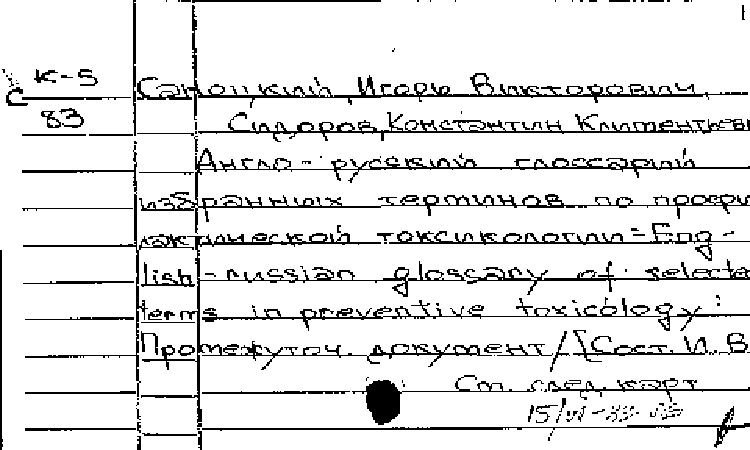 К-5
С
83
Саноцкий, Игорь Викторович,
Сидоров, Константин Климентьеви
Англо-русский глоссарий
избранных терминов по профи
лактической токсикологии = Eng-
lish-russian glossary of selecte
terms in preventive toxicology:
Промежуточ. документ / [Сост. И. В
См. след. карт
15/VI-83